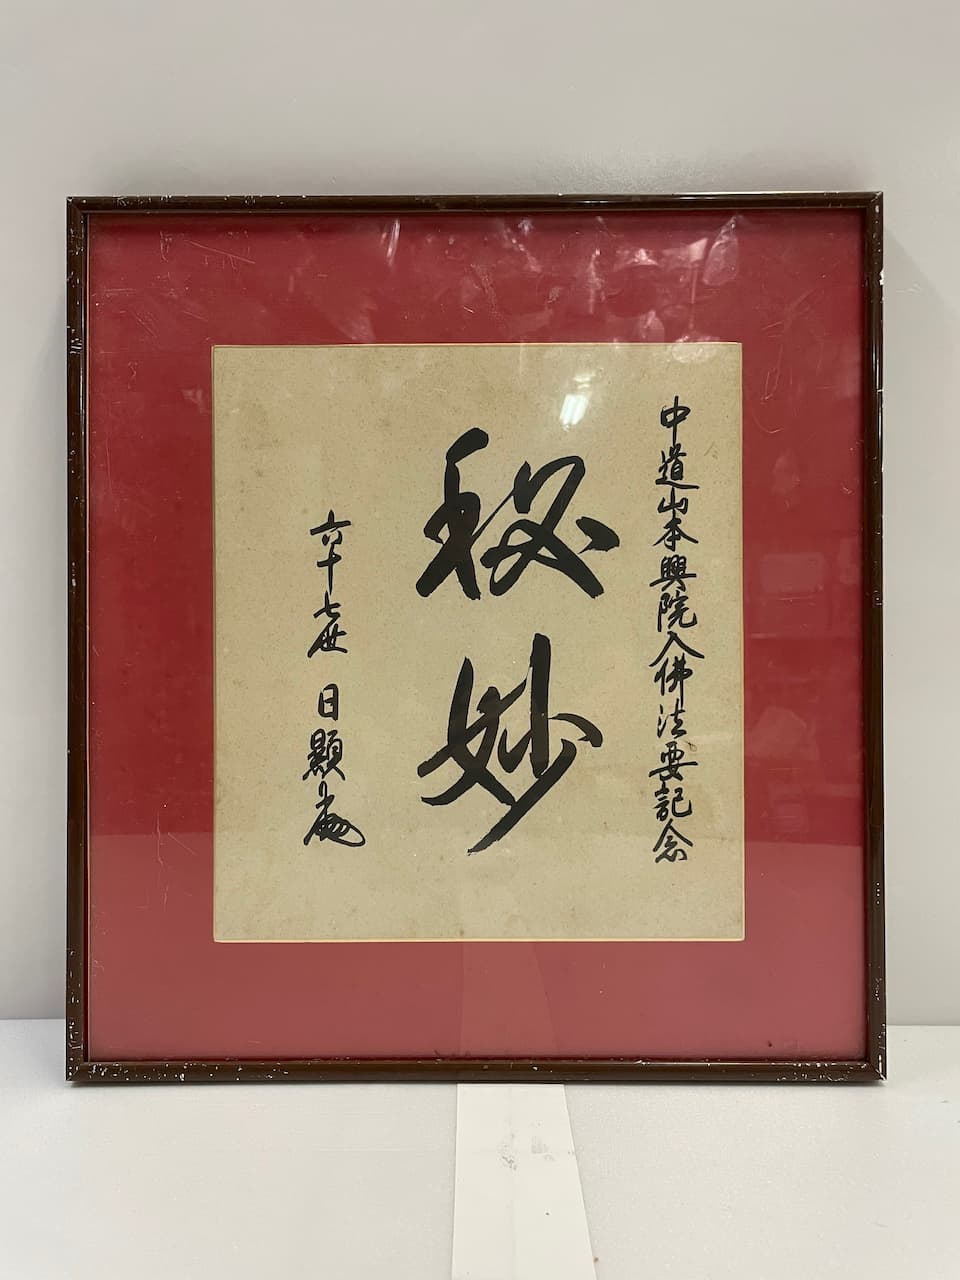 中道山本興院入佛法要記念
秘妙
六十七世 日顯